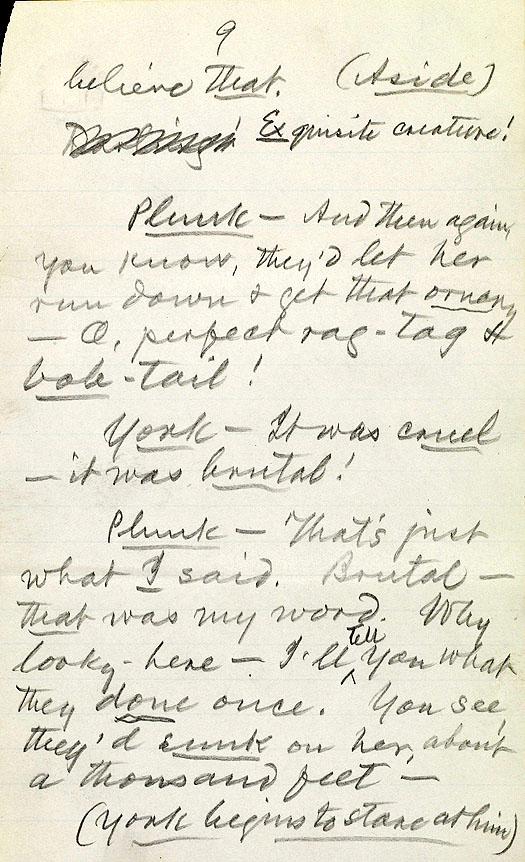 9
believe that. (Aside)
Exquisite creature!
Plunk — And then again,
you know, they'd let her
run down & get that ornary,
— O, perfect rag-tag &
bob-tail!
York — It was cruel
— it was brutal!
Plunk — That's just
what I said. Brutal —
that was my word. Why
looky-here — I'll tell you what
they done once. You see,
they'd sunk on her, about
a thousand feet —
(York begins to stare at him)